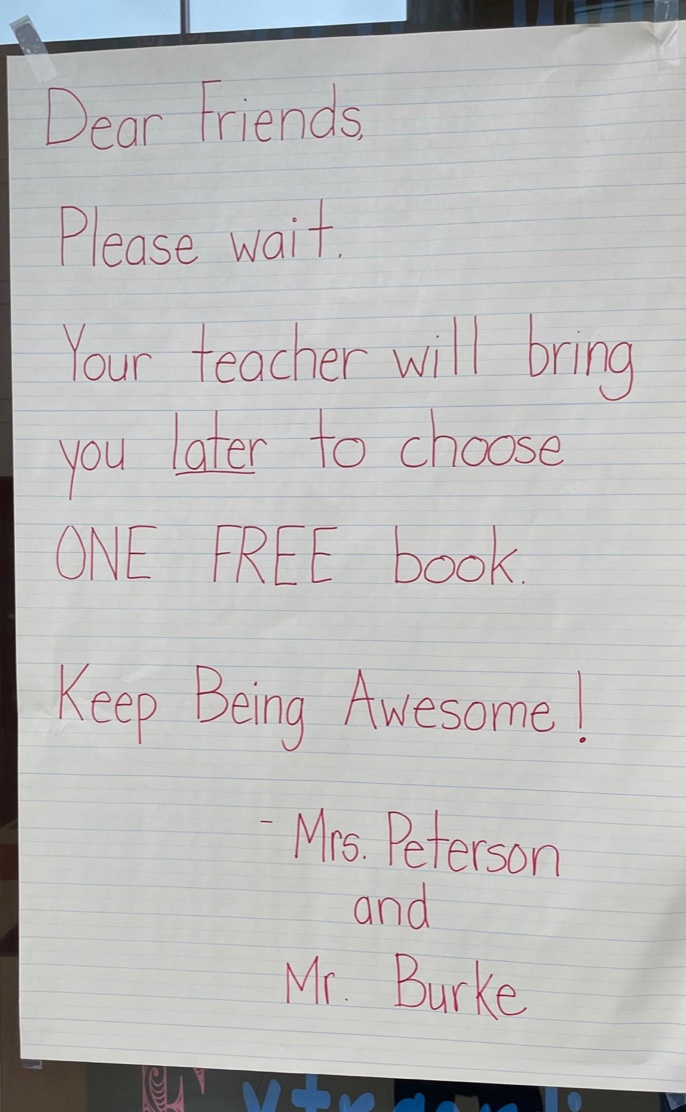 Dear Friends,
Please wait.
Your teacher will bring
you later to choose
ONE FREE book.
Keep Being Awesome!
- Mrs. Peterson
and
Mr. Burke